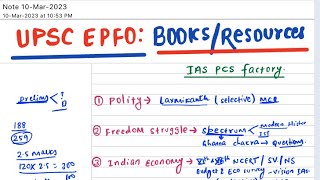 Note 10-Mar-2023
10-Mar-2023 at 10:53 PM
UPSC EPFO: BOOKS/RESOURCES
IAS PCS factory.
prelims
T
D
188
259
2.5 marks
120x 2.5 =
① Polity → Laxmikanth (selective) MCQ
② Freedom struggle → Spectrum
Modern History
Ghatna chakra → questions.
③ Indian Economy → NCERT / SV/NS
Budget & Eco survey - vision IAS